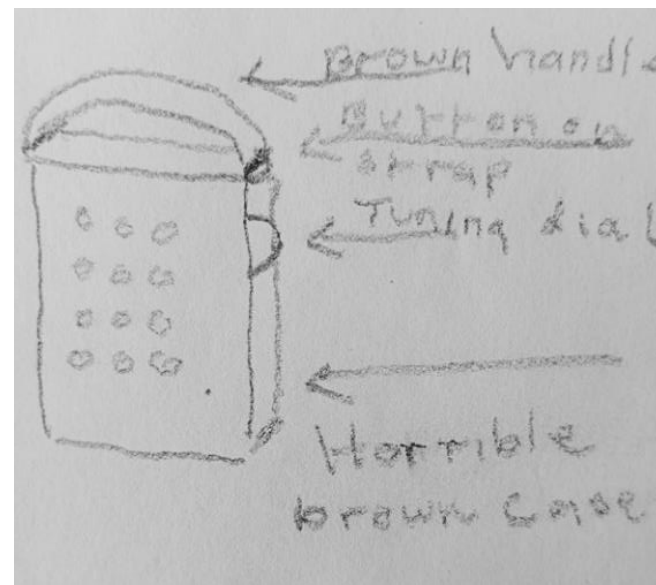 Brown handle
Button on
strap
Tuning dial
Horrible
brown case